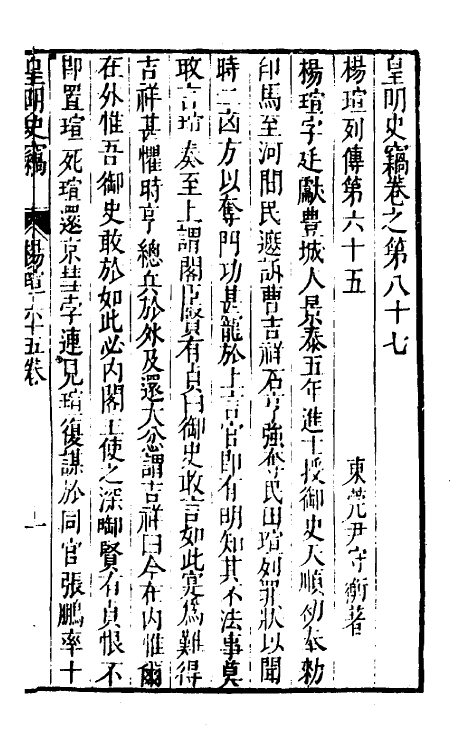 皇明史竊卷之第八十七
東莞尹守衡著
楊瑄列傳第六十五
楊瑄字廷獻豊城人景泰五年進士授御史天順初奉勑
印馬至河間民遮訴曹吉祥石亨強奪民田瑄列罪狀以聞
時二凶方以奪門功甚寵於上言官即有明知其不法事莫
敢言瑄奏至上謂閣臣賢有貞曰御史敢言如此寔爲難得
吉祥甚懼時亨總兵於外及還大忿謂吉祥曰今在內惟爾
在外惟吾御史敢於如此必內閣主使之深啣賢有貞恨不
即置瑄死瑄還京彗孛連見瑄復謀於同官張鵬率十
皇明史竊
楊瑄六十五卷
一